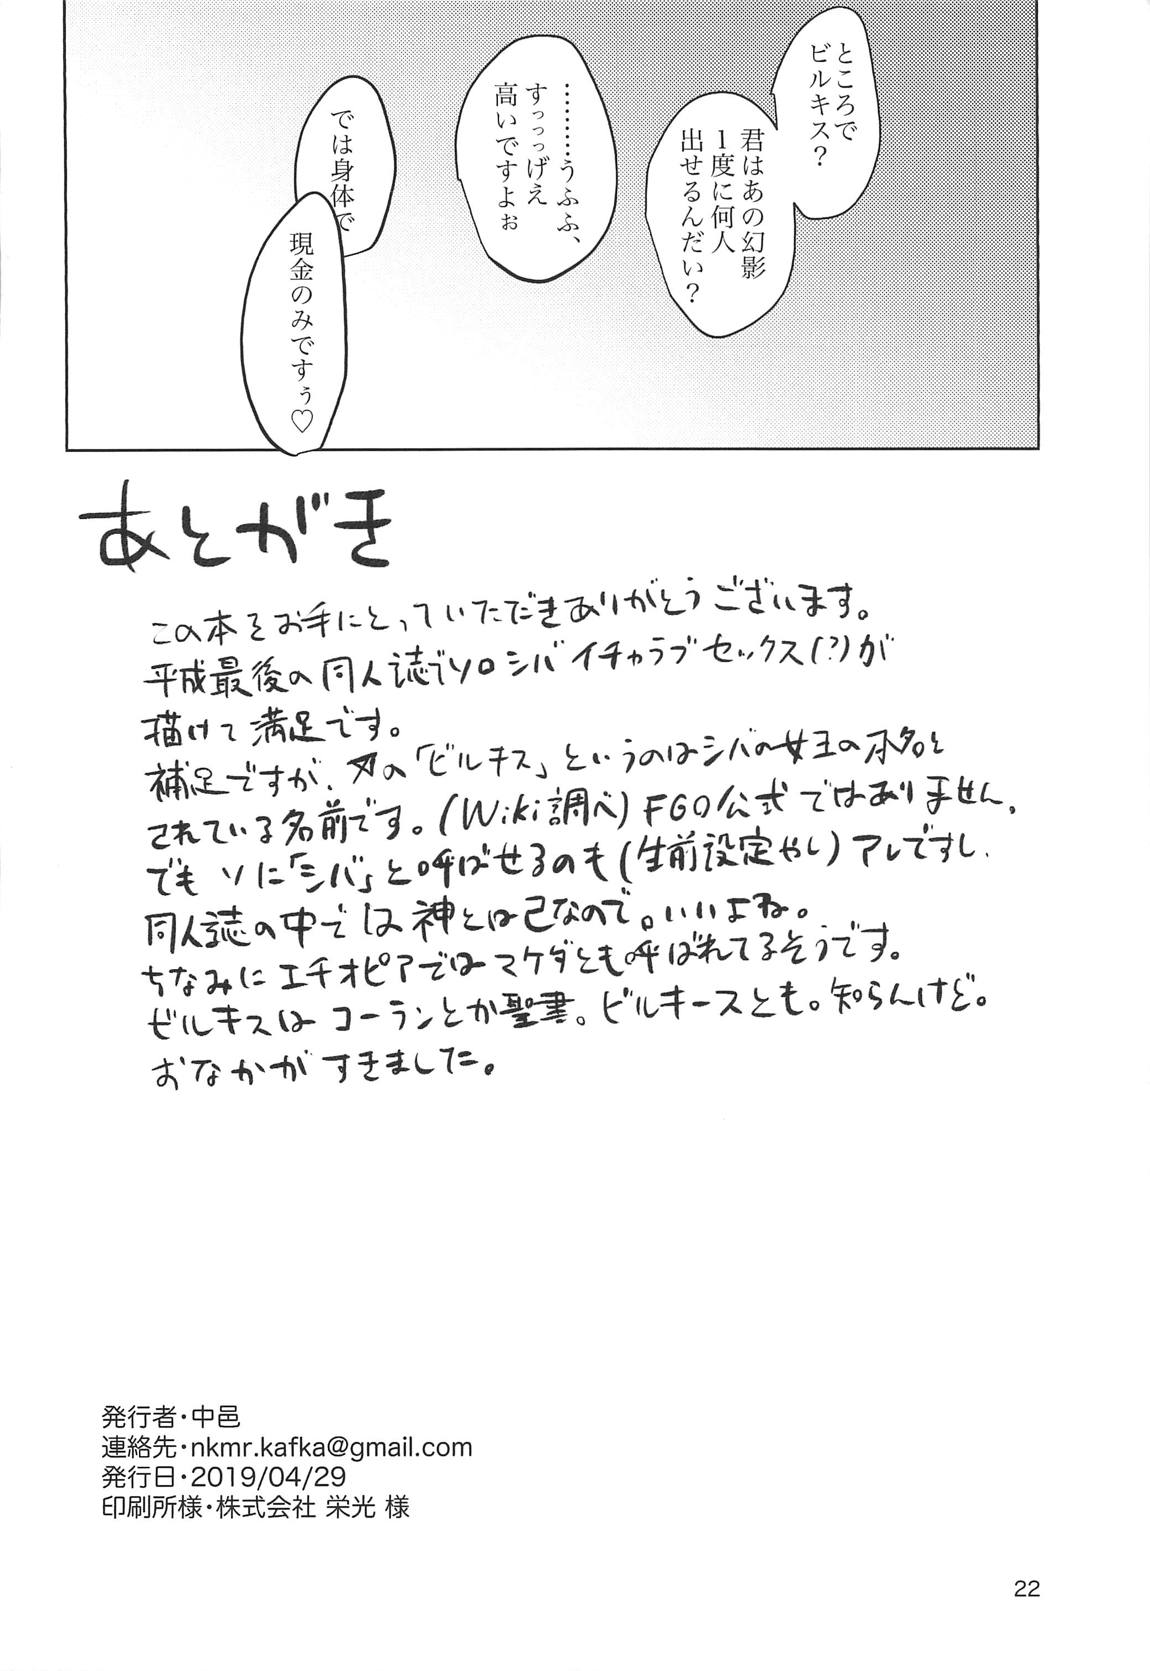 ところで
ビルキス？
君はあの幻影
１度に何人
出せるんだい？
………うふふ、
すっっっげえ
高いですよぉ
では身体で
現金のみですぅ♡
あとがき
この本をお手にとっていただきありがとうございます。
平成最後の同人誌でソロシバイチャラブセックス(?)が
描けて満足です。
補足ですが、刃の「ビルキス」というのはシバの女王の本名と
されている名前です。(Wiki調べ)FGO公式ではありません。
でもソに「シバ」と呼ばせるのも(生前設定やし)アレですし、
同人誌の中では神とは己なので。いいよね。
ちなみにエチオピアではマケダとも呼ばれてるそうです。
ビルキスはコーランとか聖書。ビルキースとも。知らんけど。
おなかがすきました。
発行者・中邑
連絡先・nkmr.kafka@gmail.com
発行日・2019/04/29
印刷所様・株式会社 栄光 様
22